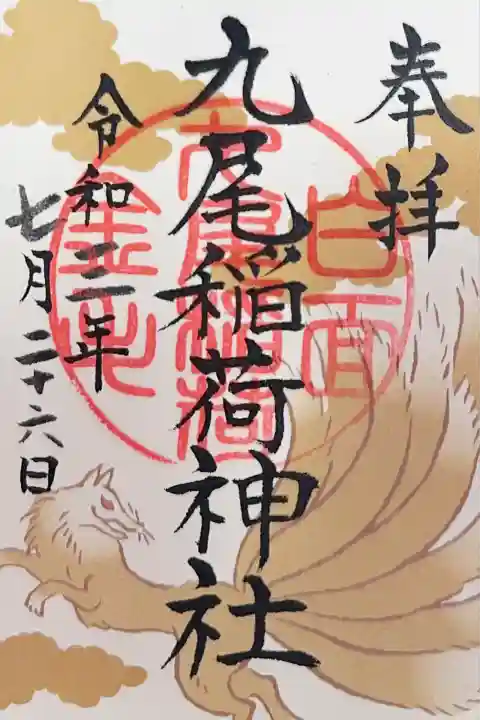 奉拝
九尾稲荷神社
令和三年
七月二十六日
白面
金毛